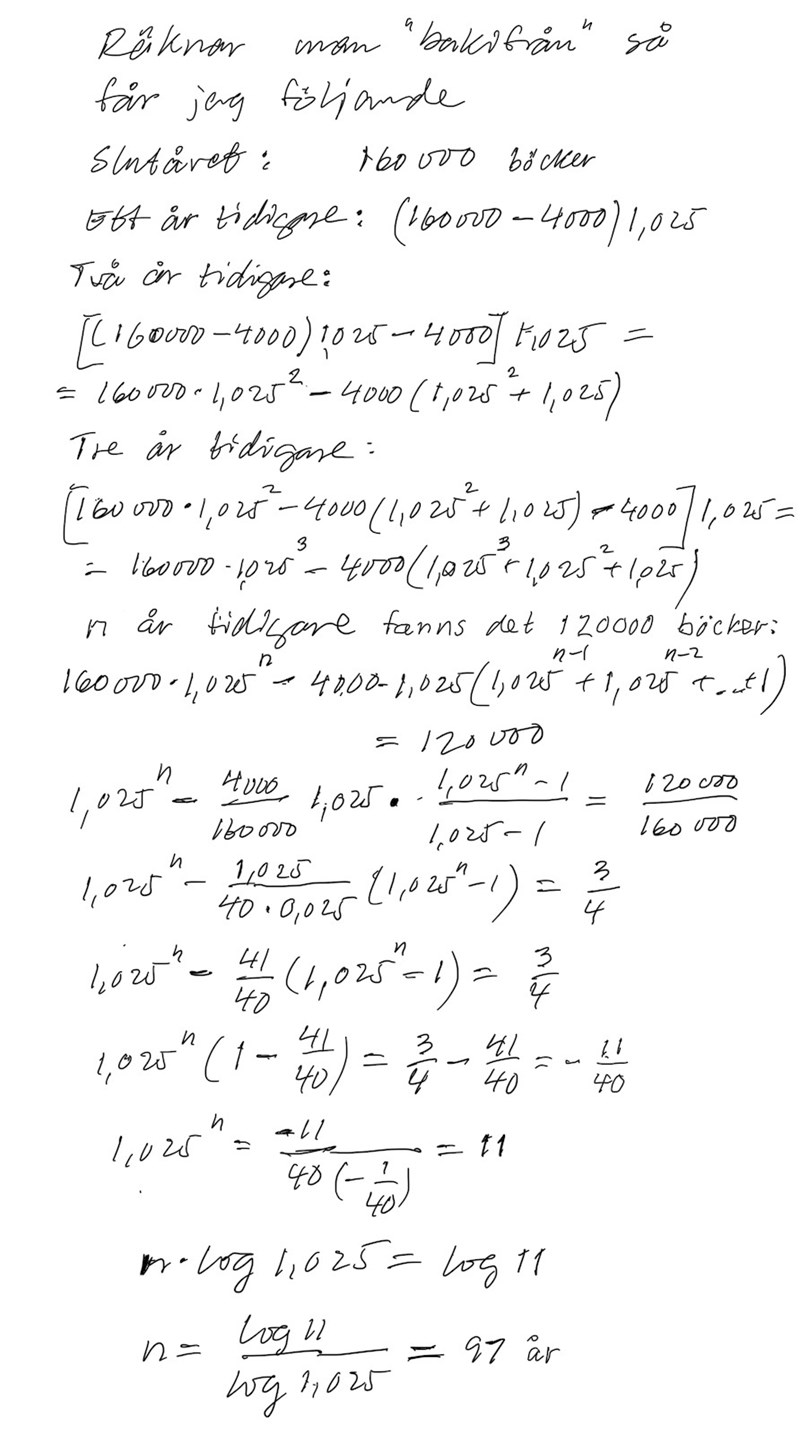 Räknar man "bakifrån" så
får jag följande
Slutåret: 160 000 böcker
Ett år tidigare: (160000 − 4000) 1,025
Två år tidigare:
[(160000 − 4000) 1,025 − 4000] 1,025 =
= 160 000 · 1,025² − 4000 (1,025² + 1,025)
Tre år tidigare:
[160 000 · 1,025² − 4000 (1,025² + 1,025) − 4000] 1,025 =
= 160000 · 1,025³ − 4000 (1,025³ + 1,025² + 1,025)
n år tidigare fanns det 120000 böcker:
160 000 · 1,025ⁿ − 4000 · 1,025 (1,025ⁿ⁻¹ + 1,025ⁿ⁻² + ... + 1)
= 120 000
1,025ⁿ − 4000/160000 1,025 · (1,025ⁿ − 1)/(1,025 − 1) = 120 000/160 000
1,025ⁿ − 1,025/(40 · 0,025) (1,025ⁿ − 1) = 3/4
1,025ⁿ − 41/40 (1,025ⁿ − 1) = 3/4
1,025ⁿ (1 − 41/40) = 3/4 − 41/40 = − 11/40
1,025ⁿ = −11/(40 (− 1/40)) = 11
n · log 1,025 = log 11
n = log 11/log 1,025 = 97 år